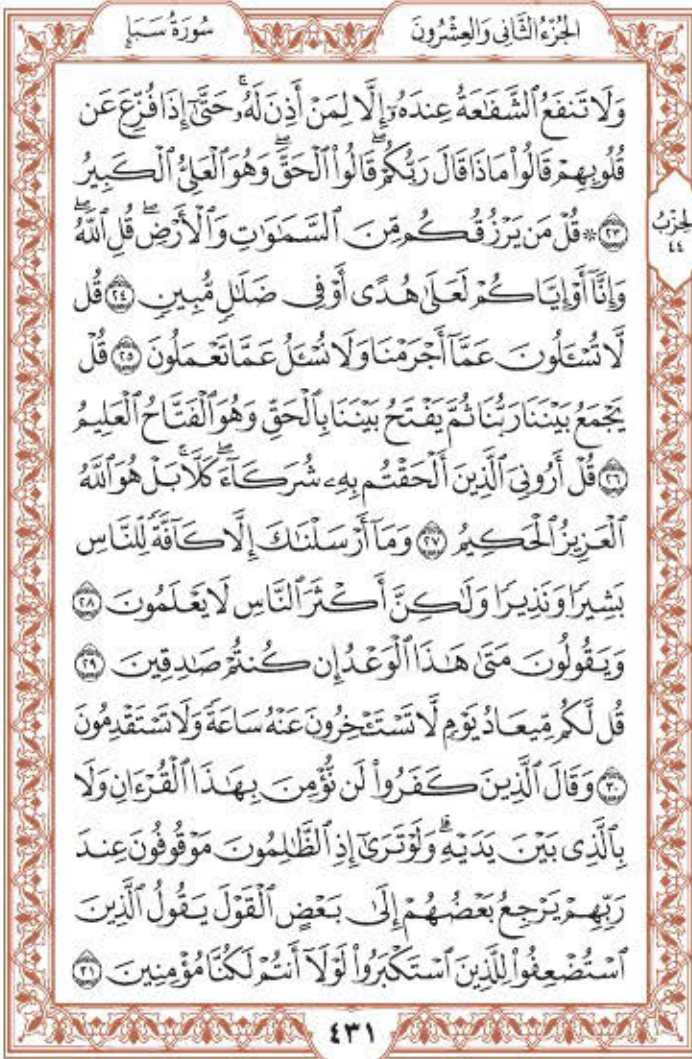 سُورَةُ سَبَإٍ
الجُزْءُ الثَّانِي وَالعِشْرُونَ
وَلَا تَنفَعُ ٱلشَّفَٰعَةُ عِندَهُۥٓ إِلَّا لِمَنْ أَذِنَ لَهُۥۚ حَتَّىٰٓ إِذَا فُزِّعَ عَن
قُلُوبِهِمْ قَالُوا۟ مَاذَا قَالَ رَبُّكُمْۖ قَالُوا۟ ٱلْحَقَّۖ وَهُوَ ٱلْعَلِىُّ ٱلْكَبِيرُ
٢٣ ۞ قُلْ مَن يَرْزُقُكُم مِّنَ ٱلسَّمَٰوَٰتِ وَٱلْأَرْضِۖ قُلِ ٱللَّهُۖ
وَإِنَّآ أَوْ إِيَّاكُمْ لَعَلَىٰ هُدًى أَوْ فِى ضَلَٰلٍ مُّبِينٍ ٢٤ قُل
لَّا تُسْـَٔلُونَ عَمَّآ أَجْرَمْنَا وَلَا نُسْـَٔلُ عَمَّا تَعْمَلُونَ ٢٥ قُلْ
يَجْمَعُ بَيْنَنَا رَبُّنَا ثُمَّ يَفْتَحُ بَيْنَنَا بِٱلْحَقِّ وَهُوَ ٱلْفَتَّاحُ ٱلْعَلِيمُ
٢٦ قُلْ أَرُونِىَ ٱلَّذِينَ أَلْحَقْتُم بِهِۦ شُرَكَآءَۖ كَلَّاۚ بَلْ هُوَ ٱللَّهُ
ٱلْعَزِيزُ ٱلْحَكِيمُ ٢٧ وَمَآ أَرْسَلْنَٰكَ إِلَّا كَآفَّةً لِّلنَّاسِ
بَشِيرًا وَنَذِيرًا وَلَٰكِنَّ أَكْثَرَ ٱلنَّاسِ لَا يَعْلَمُونَ ٢٨
وَيَقُولُونَ مَتَىٰ هَٰذَا ٱلْوَعْدُ إِن كُنتُمْ صَٰدِقِينَ ٢٩
قُل لَّكُم مِّيعَادُ يَوْمٍ لَّا تَسْتَـْٔخِرُونَ عَنْهُ سَاعَةً وَلَا تَسْتَقْدِمُونَ
٣٠ وَقَالَ ٱلَّذِينَ كَفَرُوا۟ لَن نُّؤْمِنَ بِهَٰذَا ٱلْقُرْءَانِ وَلَا
بِٱلَّذِى بَيْنَ يَدَيْهِۗ وَلَوْ تَرَىٰٓ إِذِ ٱلظَّٰلِمُونَ مَوْقُوفُونَ عِندَ
رَبِّهِمْ يَرْجِعُ بَعْضُهُمْ إِلَىٰ بَعْضٍ ٱلْقَوْلَ يَقُولُ ٱلَّذِينَ
ٱسْتُضْعِفُوا۟ لِلَّذِينَ ٱسْتَكْبَرُوا۟ لَوْلَآ أَنتُمْ لَكُنَّا مُؤْمِنِينَ ٣١
الحِزْبُ
٤٤
٤٣١